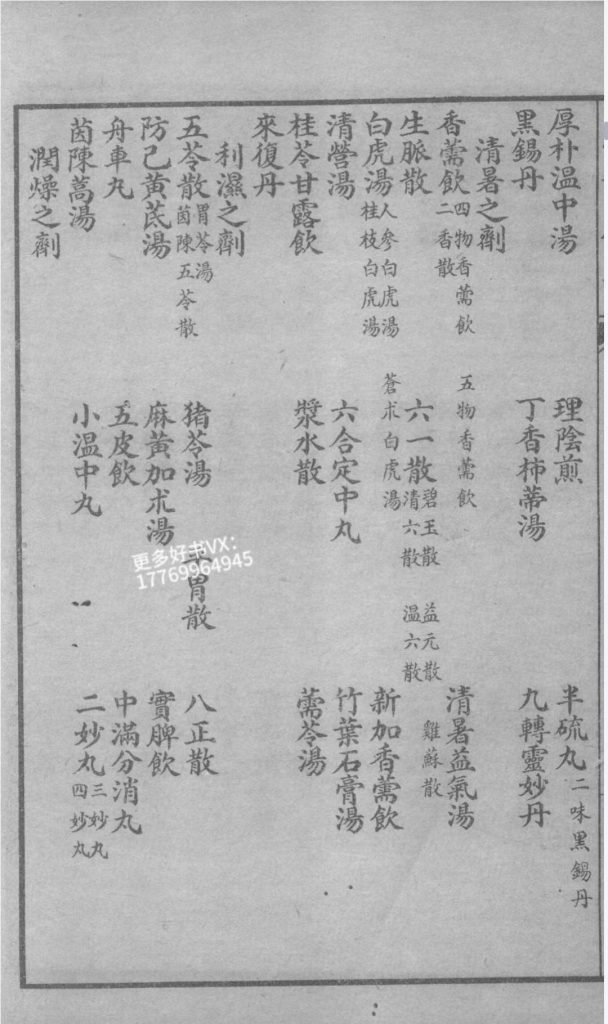 厚朴温中湯　理陰煎　半硫丸 二味黑錫丹
黑錫丹　丁香柿蒂湯　九轉靈妙丹
清暑之劑
香薷飲 四物香薷飲 五物香薷飲 二香散　清暑益氣湯
生脈散　六一散 碧玉散 益元散 雞蘇散 清六散 温六散
白虎湯 人參白虎湯 蒼朮白虎湯 桂枝白虎湯　新加香薷飲
清營湯　六合定中丸　竹葉石膏湯
桂苓甘露飲　漿水散　薷苓湯
來復丹
利濕之劑
五苓散 胃苓湯 茵陳五苓散　猪苓湯　胃散　八正散
防己黃芪湯　麻黃加朮湯　實脾飲
舟車丸　五皮飲　中滿分消丸
茵陳蒿湯　小温中丸　二妙丸 三妙丸 四妙丸
潤燥之劑
更多好书VX：
17769964945